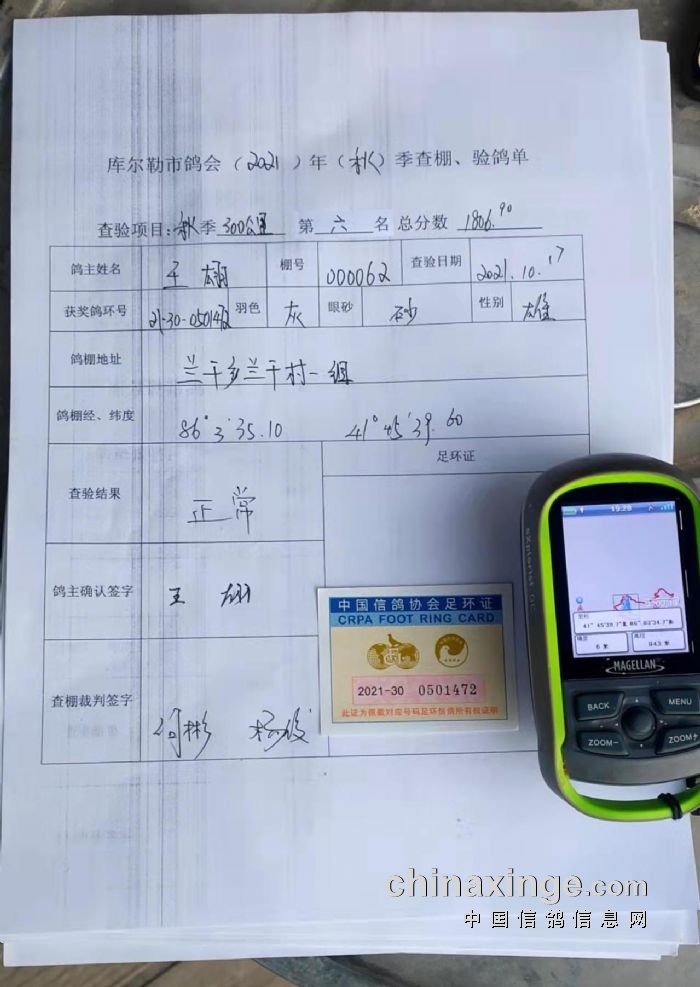 库尔勒市鸽会（2021）年（秋）季查棚、验鸽单
查验项目：秋季 300公里 第 六 名 总分数 1806.90
鸽主姓名 王 棚号 000062 查验日期 2021.10.17
获奖鸽环号 21-30-0501472 羽色 灰 眼砂 砂 性别 雄
鸽棚地址 兰干乡兰干村一组
鸽棚经、纬度 86°3′35.10 41°45′39.60
查验结果 正常 足环证
鸽主确认签字 王
查棚裁判签字 彬 杨俊
中国信鸽协会足环证
CRPA FOOT RING CARD
2021-30 0501472
此证为佩戴对应号码足环信鸽所有权证明
eXplorist GC
19:28
6 米 943 米
MAGELLAN
BACK MENU
ZOOM- ZOOM+
chinaxinge.com
中国信鸽信息网